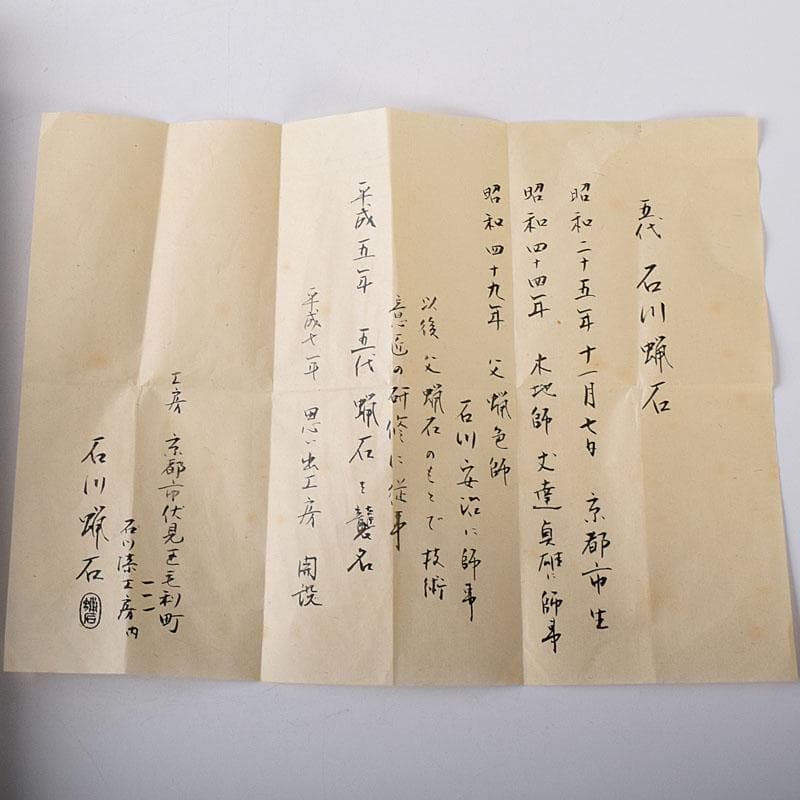 五代 石川蝋石
昭和二十五年十一月七日 京都市生
昭和四十四年 木地師 丈達貞雄に師事
昭和四十九年 父蝋色師
石川安治に師事
以後 父蝋石のもとで技術
意匠の研修に従事
平成五年 五代 蝋石を襲名
平成七年 思い出工房 開設
工房 京都市伏見区毛利町
一一一
石川漆工房内
石川蝋石
蝋石